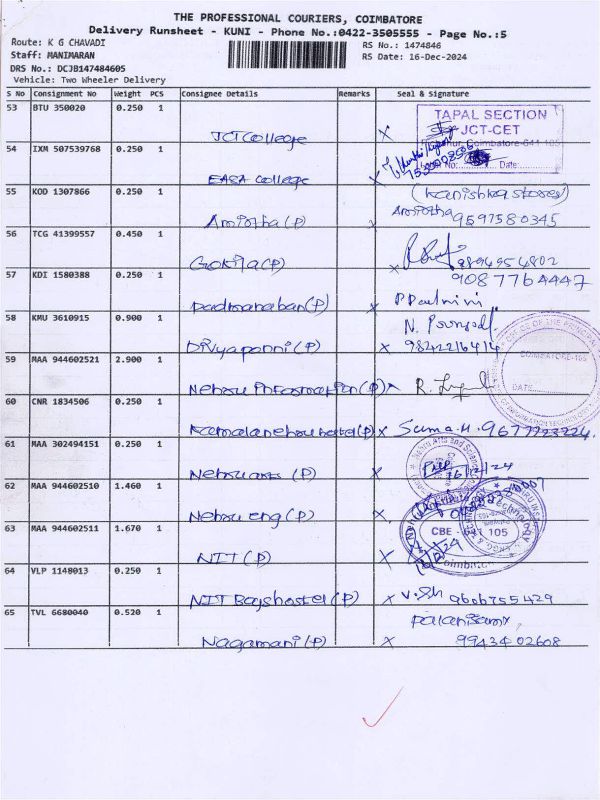 THE PROFESSIONAL COURIERS, COIMBATORE
Delivery Runsheet - KUNI - Phone No.:0422-3505555 - Page No.:5
Route: K G CHAVADI
RS No.: 1474846
Staff: MANIMARAN
RS Date: 16-Dec-2024
DRS No.: DCJB147484605
Vehicle: Two Wheeler Delivery
S No Consignment No Weight PCS Consignee Details Remarks Seal & Signature
53 BTU 350020 0.250 1
JCT College x
TAPAL SECTION
JCT-CET
Coimbatore-641 105
No: Date:
54 IXM 507539768 0.250 1
EASA College x
55 KOD 1307866 0.250 1
(Kanishka stores)
Amirtha (P) Amirtha 9597580345
56 TCG 41399557 0.450 1
Gokila (P) x 9894954802
57 KDI 1580388 0.250 1
9087764447
Padmanaban (P) x P Padmini
58 KMU 3610915 0.900 1
Divyaponni (P) x 9842216414
OFFICE OF THE PRINCIPAL
COIMBATORE-105
DATE
59 MAA 944602521 2.900 1
Nehru Information (P) x
60 CNR 1834506 0.250 1
Kamala nehru hostel (P) x Suma.M. 9677223224
61 MAA 302494151 0.250 1
Nehru arts (P) x 16/12/24
Nehru Arts and Science
62 MAA 944602510 1.460 1
Nehru eng (P) x
63 MAA 944602511 1.670 1
NIT (P) x
CBE - 641 105
Coimbatore
64 VLP 1148013 0.250 1
NIT Boys hostel (P) x 9606755429
65 TVL 6680040 0.520 1
Palanisamy
Nagamani (P) x 99434 02608